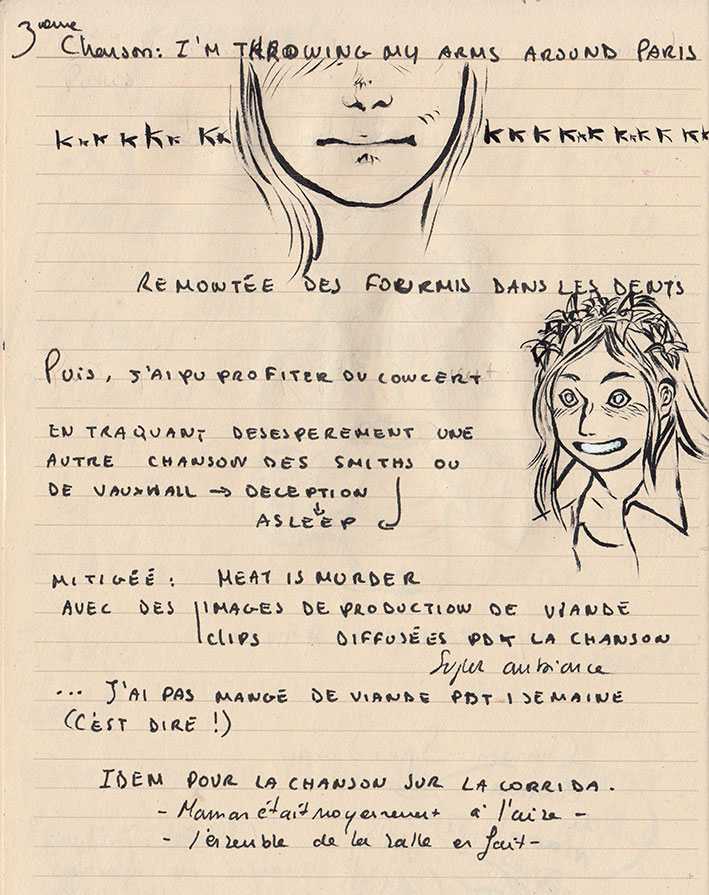 3ieme
Chanson: I'M THROWING MY ARMS AROUND PARIS
KKK KKK KK KKKK KKK KKK KK
REMONTÉE DES FOURMIS DANS LES DENTS
PUIS, J'AI PU PROFITER DU CONCERT
EN TRAQUANT DESESPEREMENT UNE
AUTRE CHANSON DES SMITHS OU
DE VAUXHALL → DECEPTION
↓
ASLEEP
MITIGÉÉ : MEAT IS MURDER
AVEC DES IMAGES DE PRODUCTION DE VIANDE
CLIPS DIFFUSÉES PDT LA CHANSON
Super ambiance
... J'AI PAS MANGÉ DE VIANDE PDT 1 SEMAINE
(C'EST DIRE !)
IDEM POUR LA CHANSON SUR LA CORRIDA.
- Maman était moyennement à l'aise -
- l'ensemble de la salle en fait -